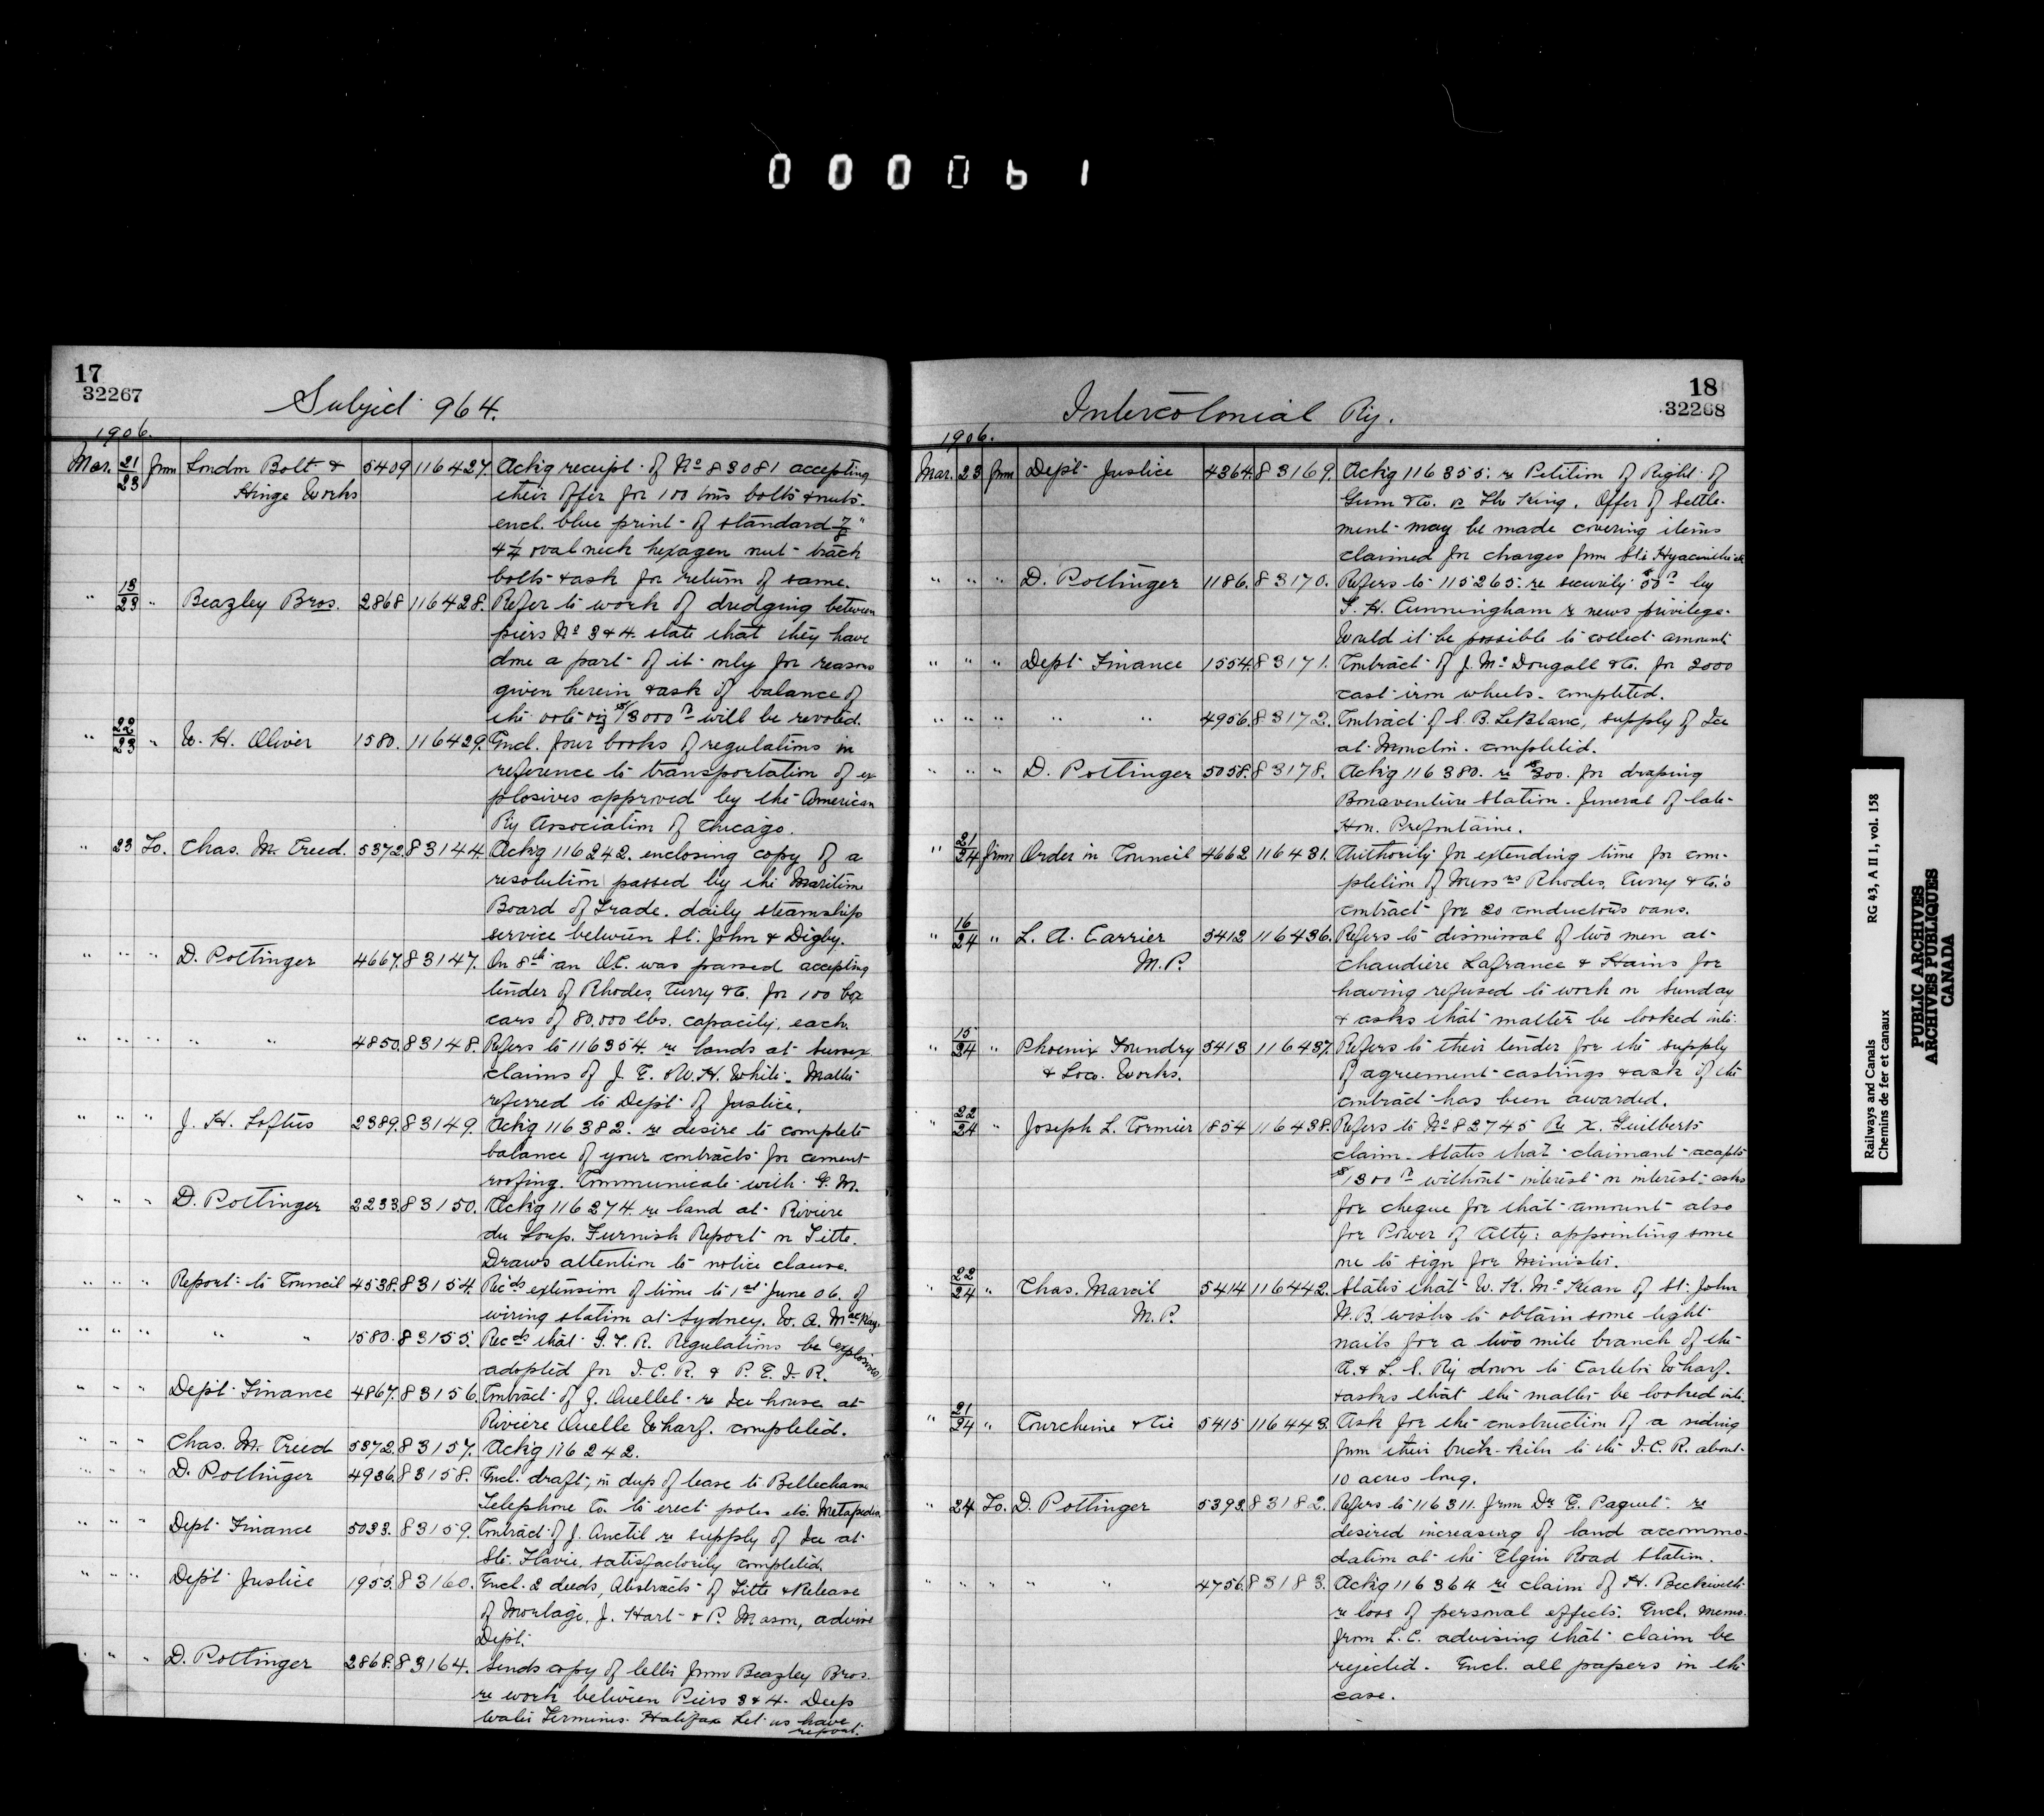 000061
17
32267
Subject 964.
1906.
Mar. 21/23 from London Bolt & 5409 116427. Ackg receipt of No 83081 accepting
Hinge Works their offer for 100 tons bolts & nuts.
encl. blue print of standard 7/8"
4 1/4 oval neck hexagen nut track
bolts & ask for return of same.
" 13/23 " Beazley Bros. 2868 116428. Refer to work of dredging between
piers No 3 & 4. state that they have
done a part of it only for reasons
given herein & ask if balance of
the vote viz $13000 will be revoted.
" 22/23 " W. H. Oliver 1580. 116429. Encl. four books of regulations in
reference to transportation of ex
plosives approved by the American
Ry Association of Chicago.
" 23 To. Chas. M. Creed. 5372. 83144. Ackg 116242. enclosing copy of a
resolution passed by the Maritime
Board of Trade. daily steamship
service between St. John & Digby.
" " " D. Pottinger 4667. 83147. On 8th an OC. was passed accepting
tender of Rhodes, Curry & Co. for 100 box
cars of 80,000 lbs. capacity, each.
" " " " " 4850. 83148. Refers to 116354. re lands at Sussex
claims of J. E. & W. H. White. Matter
referred to Dept of Justice.
" " " J. H. Loftus 2389. 83149. Ackg 116382. re desire to complete
balance of your contracts for cement
roofing. Communicate with G. M.
" " " D. Pottinger 2233. 83150. Ackg 116274. re land at Riviere
du Loup. Furnish Report on Title.
Draws attention to notice clause.
" " " Report to Council 4538. 83154. Recds extension of time to 1st June 06. of
wiring station at Sydney. W. A. MacKay.
" " " " " 1580. 83155. Recds that G. T. R. Regulations be (explosives)
adopted for I. C. R. & P. E. I. R.
" " " Dept Finance 4867. 83156. Contract of J. Ouellet re Ice house at
Riviere Ouelle Wharf. completed.
" " " Chas. M. Creed 5372. 83157. Ackg 116242.
" " " D. Pottinger 4936. 83158. Encl. draft, in dup of lease to Bellechasse
Telephone Co. to erect poles etc. Metapedia
" " " Dept Finance 5033. 83159. Contract of J. Anctil re supply of Ice at
Ste. Flavie. satisfactorily completed.
" " " Dept Justice 1955. 83160. Encl. 2 deeds, Abstracts of Title & Release
of Mortage, J. Hart & P. Mason, advise
Dept.
" " " D. Pottinger 2868. 83164. Sends copy of letter from Beazley Bros.
re work between Piers 3 & 4. Deep
Water Terminus. Halifax Let us have
report.
18
32268
Intercolonial Ry.
1906.
Mar. 23 from Dept Justice 4364. 83169. Ackg 116355. re Petition of Right of
& Co. vs The King. Offer of Settle-
ment may be made covering items
claimed for charges from Ste Hyacinthe
" " " D. Pottinger 1186. 83170. Refers to 115265. re security $50 by
T. H. Cunningham re news privilege.
Would it be possible to collect amount
" " " Dept Finance 1554. 83171. Contract of J. McDougall & Co. for 2000
cast iron wheels. completed.
" " " " " 4956. 83172. Contract of S. B. LeBlanc, supply of Ice
at Moncton. completed.
" " " D. Pottinger 5058. 83178. Ackg 116380. re $300. for draping
Bonaventure Station. funeral of late
Hon. Prefontaine.
" 21/24 from Order in Council 4662 116431. Authority for extending time for com-
pletion of Messrs Rhodes, Curry & Co.'s
contract for 20 conductors vans.
" 16/24 " L. A. Carrier 5412 116436. Refers to dismissal of two men at
M.P. Chaudiere Lafrance & Hains for
having refused to work on Sunday
& asks that matter be looked into.
" 15/24 " Phoenix Foundry 5413 116437. Refers to their tender for the supply
& Loco. Works. of agreement castings & ask if the
contract has been awarded.
" 22/24 " Joseph L. Cormier 1854 116438. Refers to No 82745 Re X. Guilberts
claim. States that claimant accepts
$1300 without interest on interest. asks
for cheque for that amount also
for Power of Atty: appointing some
one to sign for Minister.
" 22/24 " Chas. Marcil 5414 116442. States that W. K. McKean of St. John
M.P. N.B. wishes to obtain some light
rails for a two mile branch of the
A. & L. S. Ry down to Carleton Wharf.
& asks that the matter be looked into.
" 21/24 " Courchene & Cie 5415 116443. Ask for the construction of a siding
from their brick kiln to the I. C. R. about
10 acres long.
" 24 To. D. Pottinger 5393. 83182. Refers to 116311. from Dr E. Paquet. re
desired increasing of land accommo-
dation at the Elgin Road Station.
" " " " " 4756. 83183. Ackg 116364 re claim of H. Beckwith
re loss of personal effects. Encl. memo.
from L.C. advising that claim be
rejected. Encl. all papers in the
case.
Railways and Canals RG 43, A II 1, vol. 158
Chemins de fer et canaux
PUBLIC ARCHIVES
ARCHIVES PUBLIQUES
CANADA